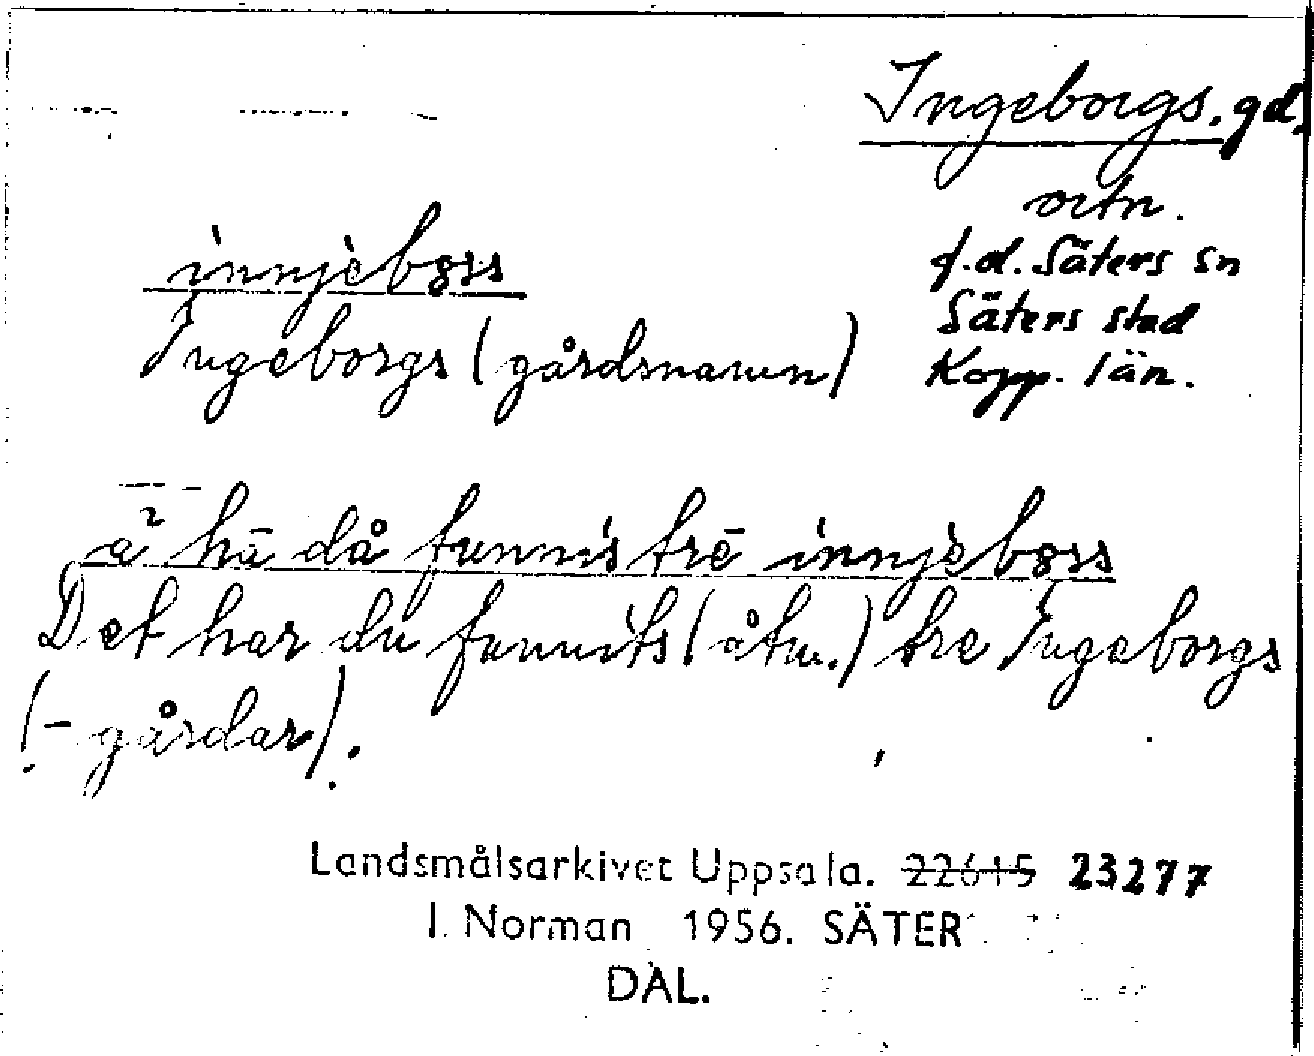 Ingeborgs. gd.
ortn.
f.d. Säters sn
Säters stad
Kopp. län.
innjebɷss
Ingeborgs (gårdsnamn)
hā då funnis trē innjebɷss
Det har du funnits (åtm.) tre Ingeborgs
(-gårdar).
Landsmålsarkivet Uppsala. 22615 23277
I. Norman 1956. SÄTER
DAL.